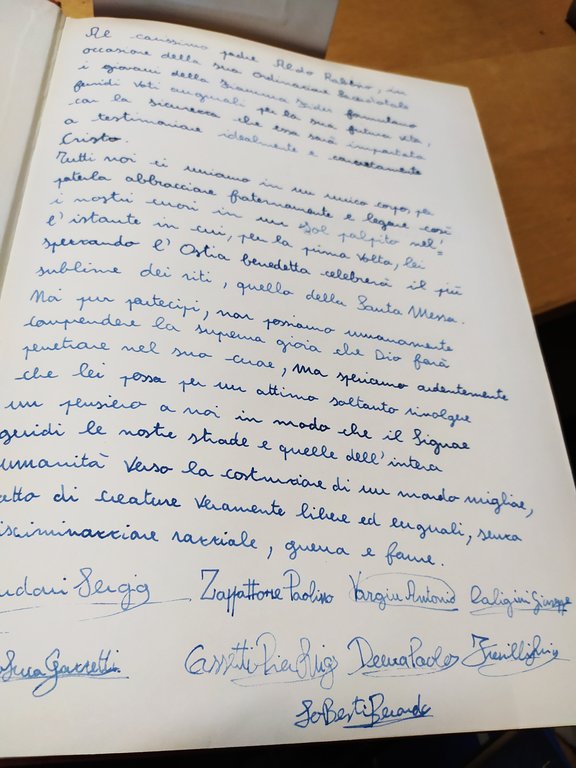 Al carissimo padre Aldo Rabino, in
occasione della sua ordinazione Sacerdotale
i giovani della Gramma Sider formulano
fervidi voti augurali per la sua futura vita,
con la sicurezza che essa sarà improntata
a testimoniare idealmente e concretamente
Cristo.
Tutti noi ci uniamo in un unico corpo, per
poterla abbracciare fraternamente e legare così
i nostri cuori in un sol palpito nel=
l'istante in cui, per la prima volta, lei
spezzando l'Ostia benedetta celebrerà il più
sublime dei riti, quello della Santa Messa.
Noi pur partecipi, non possiamo umanamente
comprendere la suprema gioia che Dio farà
penetrare nel suo cuore, ma speriamo ardentemente
che lei possa per un attimo soltanto rivolgere
un pensiero a noi in modo che il Signore
guidi le nostre strade e quelle dell'intera
umanità verso la costruzione di un mondo migliore,
fatto di creature veramente libere ed eguali, senza
discriminazione razziale, guerra e fame.
Sergio Zaffattone Paolino Vargiu Antonio Caligiuri Giuseppe
Luca Garretti Cassetti Pier Luigi Deusa Paolo
Berardo